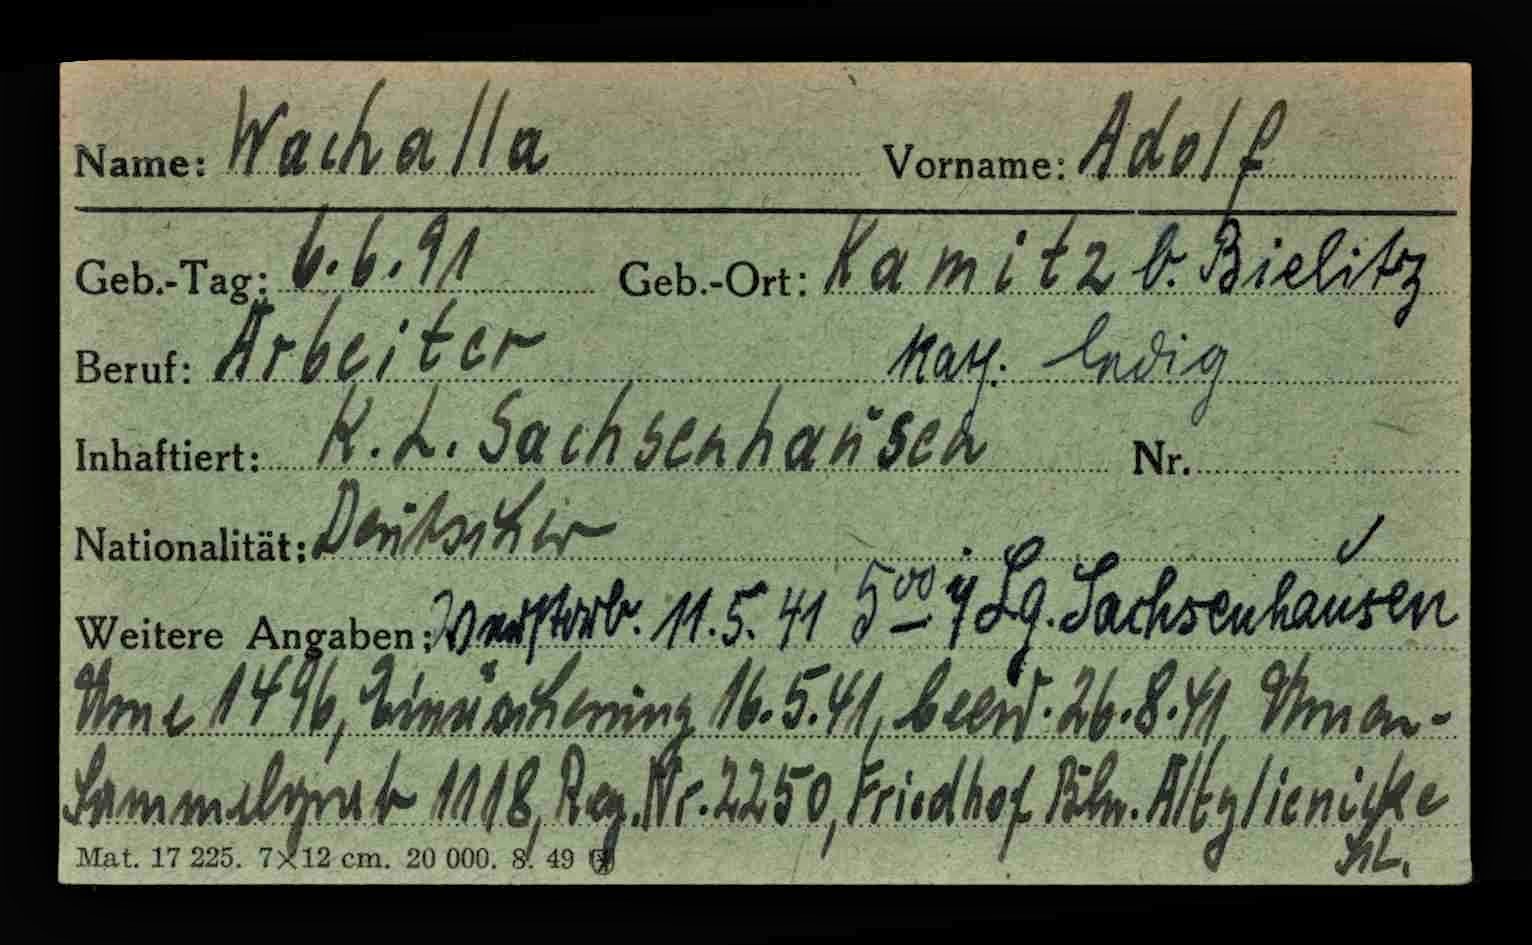 Name: Wachalla Vorname: Adolf
Geb.-Tag: 6.6.91 Geb.-Ort: Kamitz b. Bielitz
Beruf: Arbeiter kath. ledig
Inhaftiert: K.L. Sachsenhausen Nr.
Nationalität: Deutscher
Weitere Angaben: verstorb. 11.5.41 5 00 Lg. Sachsenhausen
Urne 1496, Einäscherung 16.5.41, beerd. 26.8.41 Urnen-
Sammelgrab 1118, Reg. Nr. 2250, Friedhof Bln. Altglienicke
Mat. 17 225. 7×12 cm. 20 000. 8. 49